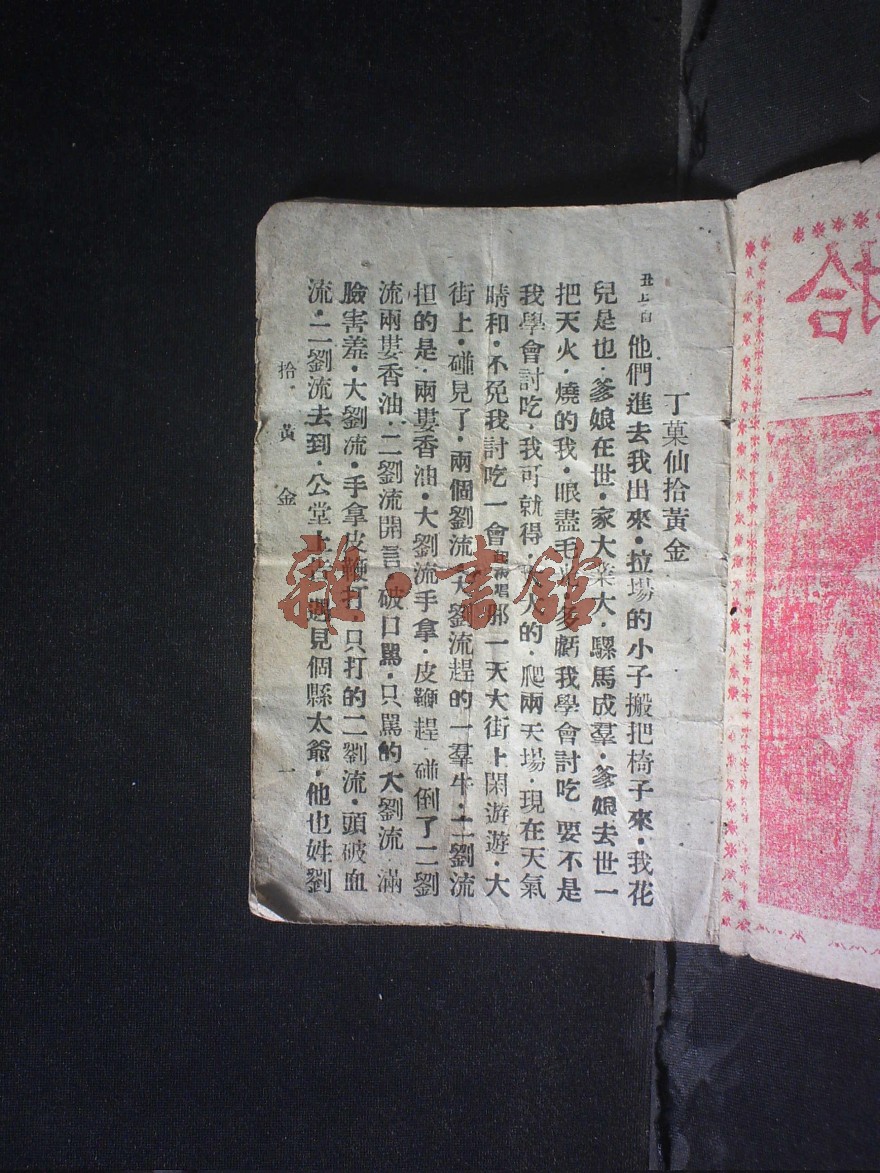 丁菓仙拾黃金
丑上白 他們進去我出來·拉場的小子搬把椅子來·我花
兒是也·爹娘在世·家大業大·騾馬成羣·爹娘去世一
把天火·燒的我·眼盡毛 多虧我學會討吃 要不是
我學會討吃·我可就得· 的·爬兩天場·現在天氣
晴和·不免我討吃一會 那一天大街上閑游遊·大
街上·碰見了·兩個劉流 大劉流趕的一羣牛·二劉流
担的是·兩婁香油·大劉流手拿·皮鞭趕·碰倒了二劉
流兩婁香油·二劉流開言 破口罵·只罵的大劉流·滿
臉害羞·大劉流·手拿皮鞭打·只打的二劉流·頭破血
流·二劉流去到·公堂上 遇見個縣太爺·他也姓劉
拾·黃金 一
雜·書館
拾